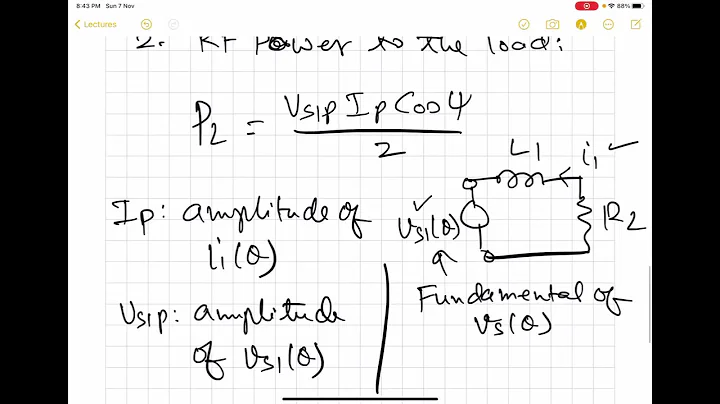 8:43 PM Sun 7 Nov
88%
Lectures
2. RF Power to the load:
P2 = Vs1p Ip Cos Ψ / 2
L1
i1
Ip: amplitude of
i1(θ)
Vs1(θ)
R2
Vs1p: amplitude
of Vs1(θ)
Fundamental of
Vs(θ)